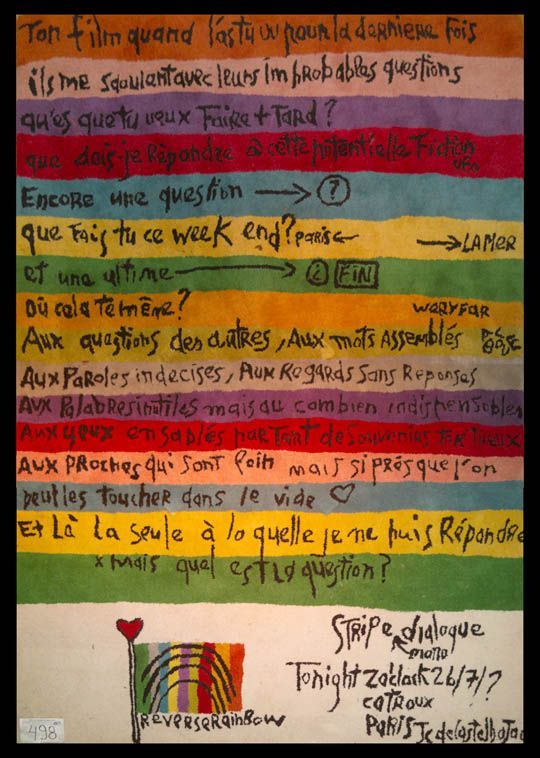 Ton film quand l'as tu vu pour la derniere fois
ils me saoulant avec leurs improbables questions
qu'es que tu veux faire + tard ?
que dois-je Répondre à cette potentielle Fiction
Encore une question → ?
que fais tu ce week end ? PARIS ← → LA MER
et une ultime → ¿ FIN
Où cela te mène ? WERY FAR
Aux questions des autres, Aux mots Assemblés PLEASE
Aux Paroles indecises, Aux Regards sans Reponses
Aux Palabres inutiles mais au combien indispensables
Aux yeux ensablés par tant de souvenirs
Aux PROCHES qui sont loin mais si près que l'on
peut les toucher dans le vide ♡
Et Là la seule à laquelle je ne puis Répondre
x mais quel est la question ?
STRIPE dialogue
mono
Tonight 26/7/?
catroux
PARIS
REVERSE RAINBOW
498